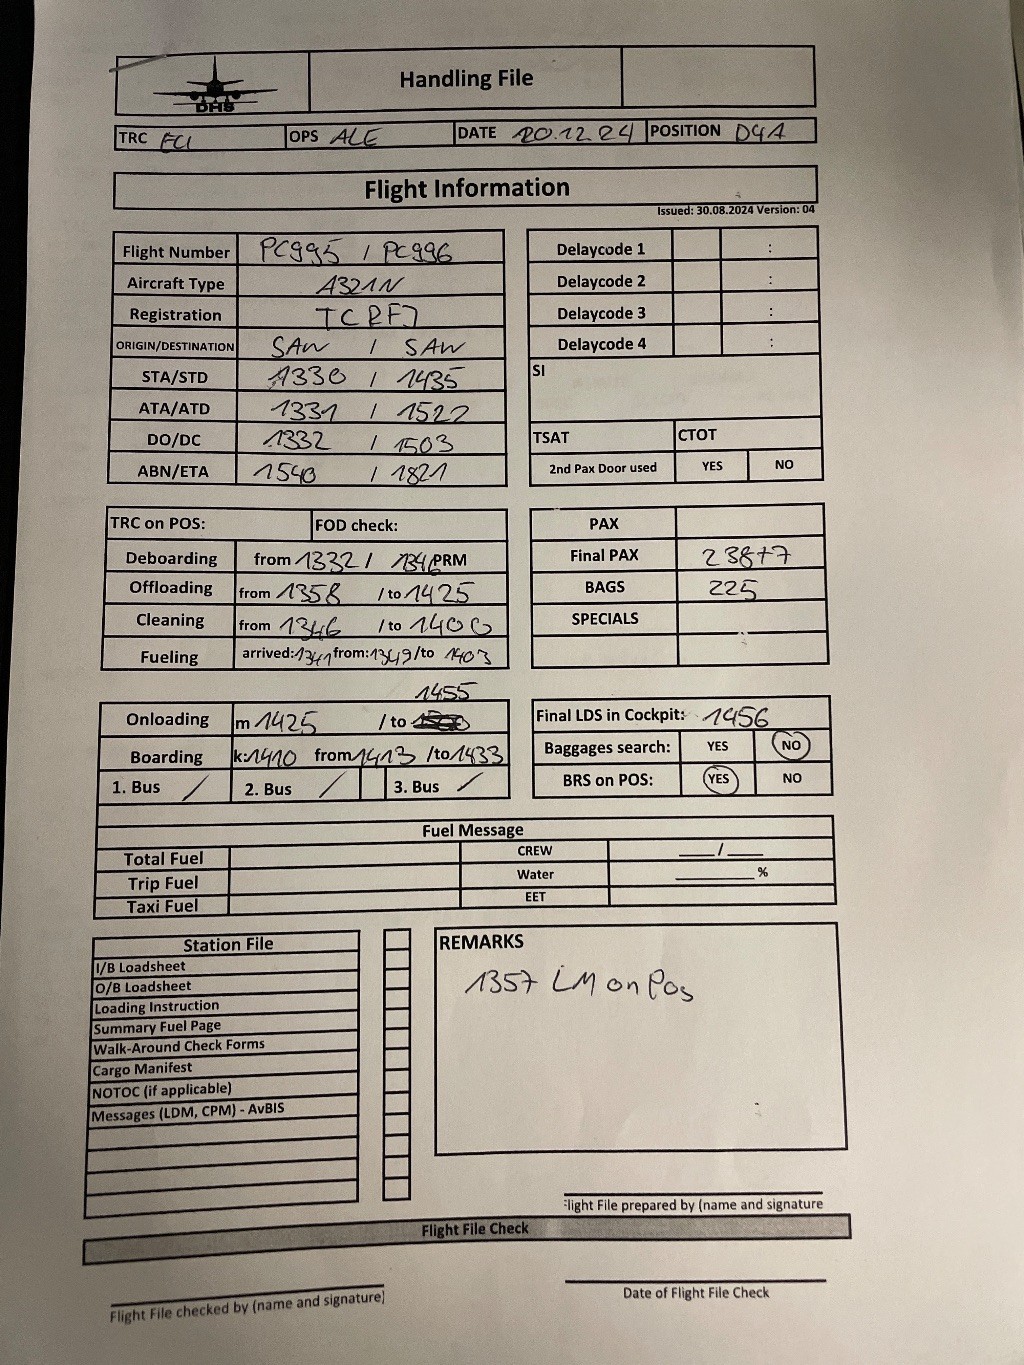 DHS
Handling File
TRC ECI OPS ALE DATE 20.12.24 POSITION D4A
Flight Information
Issued: 30.08.2024 Version: 04
Flight Number PC995 / PC996
Aircraft Type A321N
Registration TCRFJ
ORIGIN/DESTINATION SAW / SAW
STA/STD 1330 / 1435
ATA/ATD 1331 / 1522
DO/DC 1332 / 1503
ABN/ETA 1540 / 1821
Delaycode 1 :
Delaycode 2 :
Delaycode 3 :
Delaycode 4 :
SI
TSAT CTOT
2nd Pax Door used YES NO
TRC on POS: FOD check:
Deboarding from 1332 / 1346 PRM
Offloading from 1358 / to 1425
Cleaning from 1346 / to 1400
Fueling arrived: 1341 from: 1349 /to 1403
PAX
Final PAX 238+7
BAGS 225
SPECIALS
1455
Onloading m 1425 / to
Boarding k: 1410 from 1413 /to 1433
1. Bus / 2. Bus / 3. Bus /
Final LDS in Cockpit: 1456
Baggages search: YES NO
BRS on POS: YES NO
Fuel Message
Total Fuel CREW ___/___
Trip Fuel Water ______ %
Taxi Fuel EET
Station File
I/B Loadsheet
O/B Loadsheet
Loading Instruction
Summary Fuel Page
Walk-Around Check Forms
Cargo Manifest
NOTOC (if applicable)
Messages (LDM, CPM) - AvBIS
REMARKS
1357 LM on Pos
Flight File prepared by (name and signature
Flight File Check
Flight File checked by (name and signature)
Date of Flight File Check